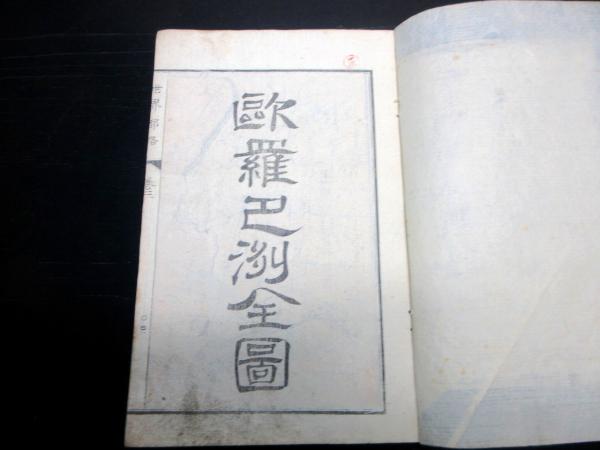 歐羅巴洲全圖
世界